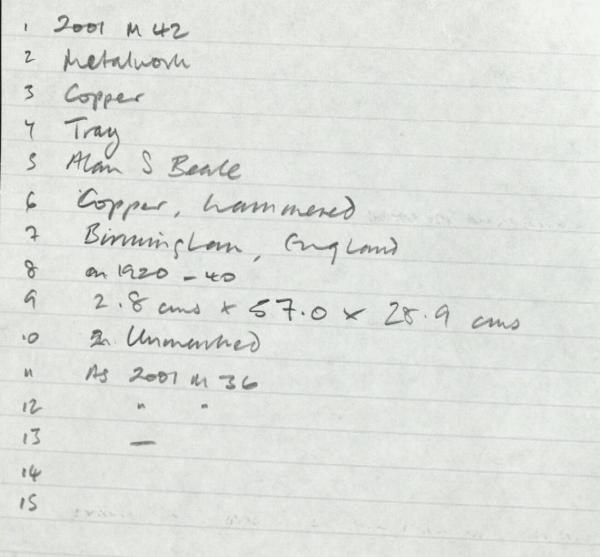 1 2001 M 42
2 Metalwork
3 Copper
4 Tray
5 Alan S Beale
6 Copper, hammered
7 Birmingham, England
8 ca 1920 - 40
9 2.8 cms x 57.0 x 28.9 cms
10 Unmarked
11 As 2001 M 36
12 " "
13 —
14
15